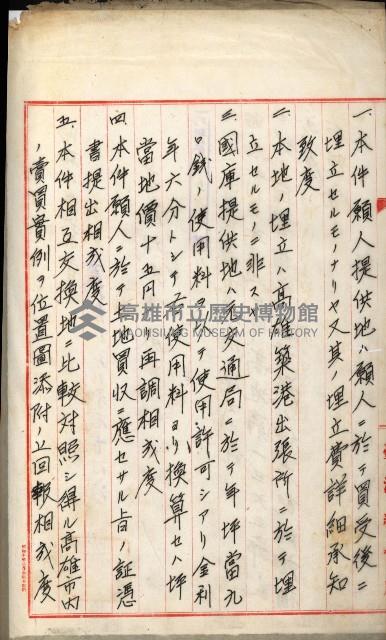 一、本件願人提供地ハ願人ニ於テ買受後ニ
埋立セルモノナリヤ又其ノ埋立費詳細承知
致度
二、本地ノ埋立ハ高雄築港出張所ニ於テ埋
立セルモノニ非ス
三、國庫提供地ハ元交通局ニ於テ年坪當九
〇錢ノ使用料ヲ以テ使用許可シアリ金利
年六分トシテ右使用料ヨリ換算セハ坪
當地價十五円ナリ再調相成度
四、本件願人ニ於テ土地買收ニ應セサル旨ノ証憑
書提出相成度
五、本件相互交換地ニ比較対照シ得ル高雄市内
ノ賣買實例ヲ位置圖添附ノ上回報相成度
高雄市立歷史博物館
KAOHSIUNG MUSEUM OF HISTORY